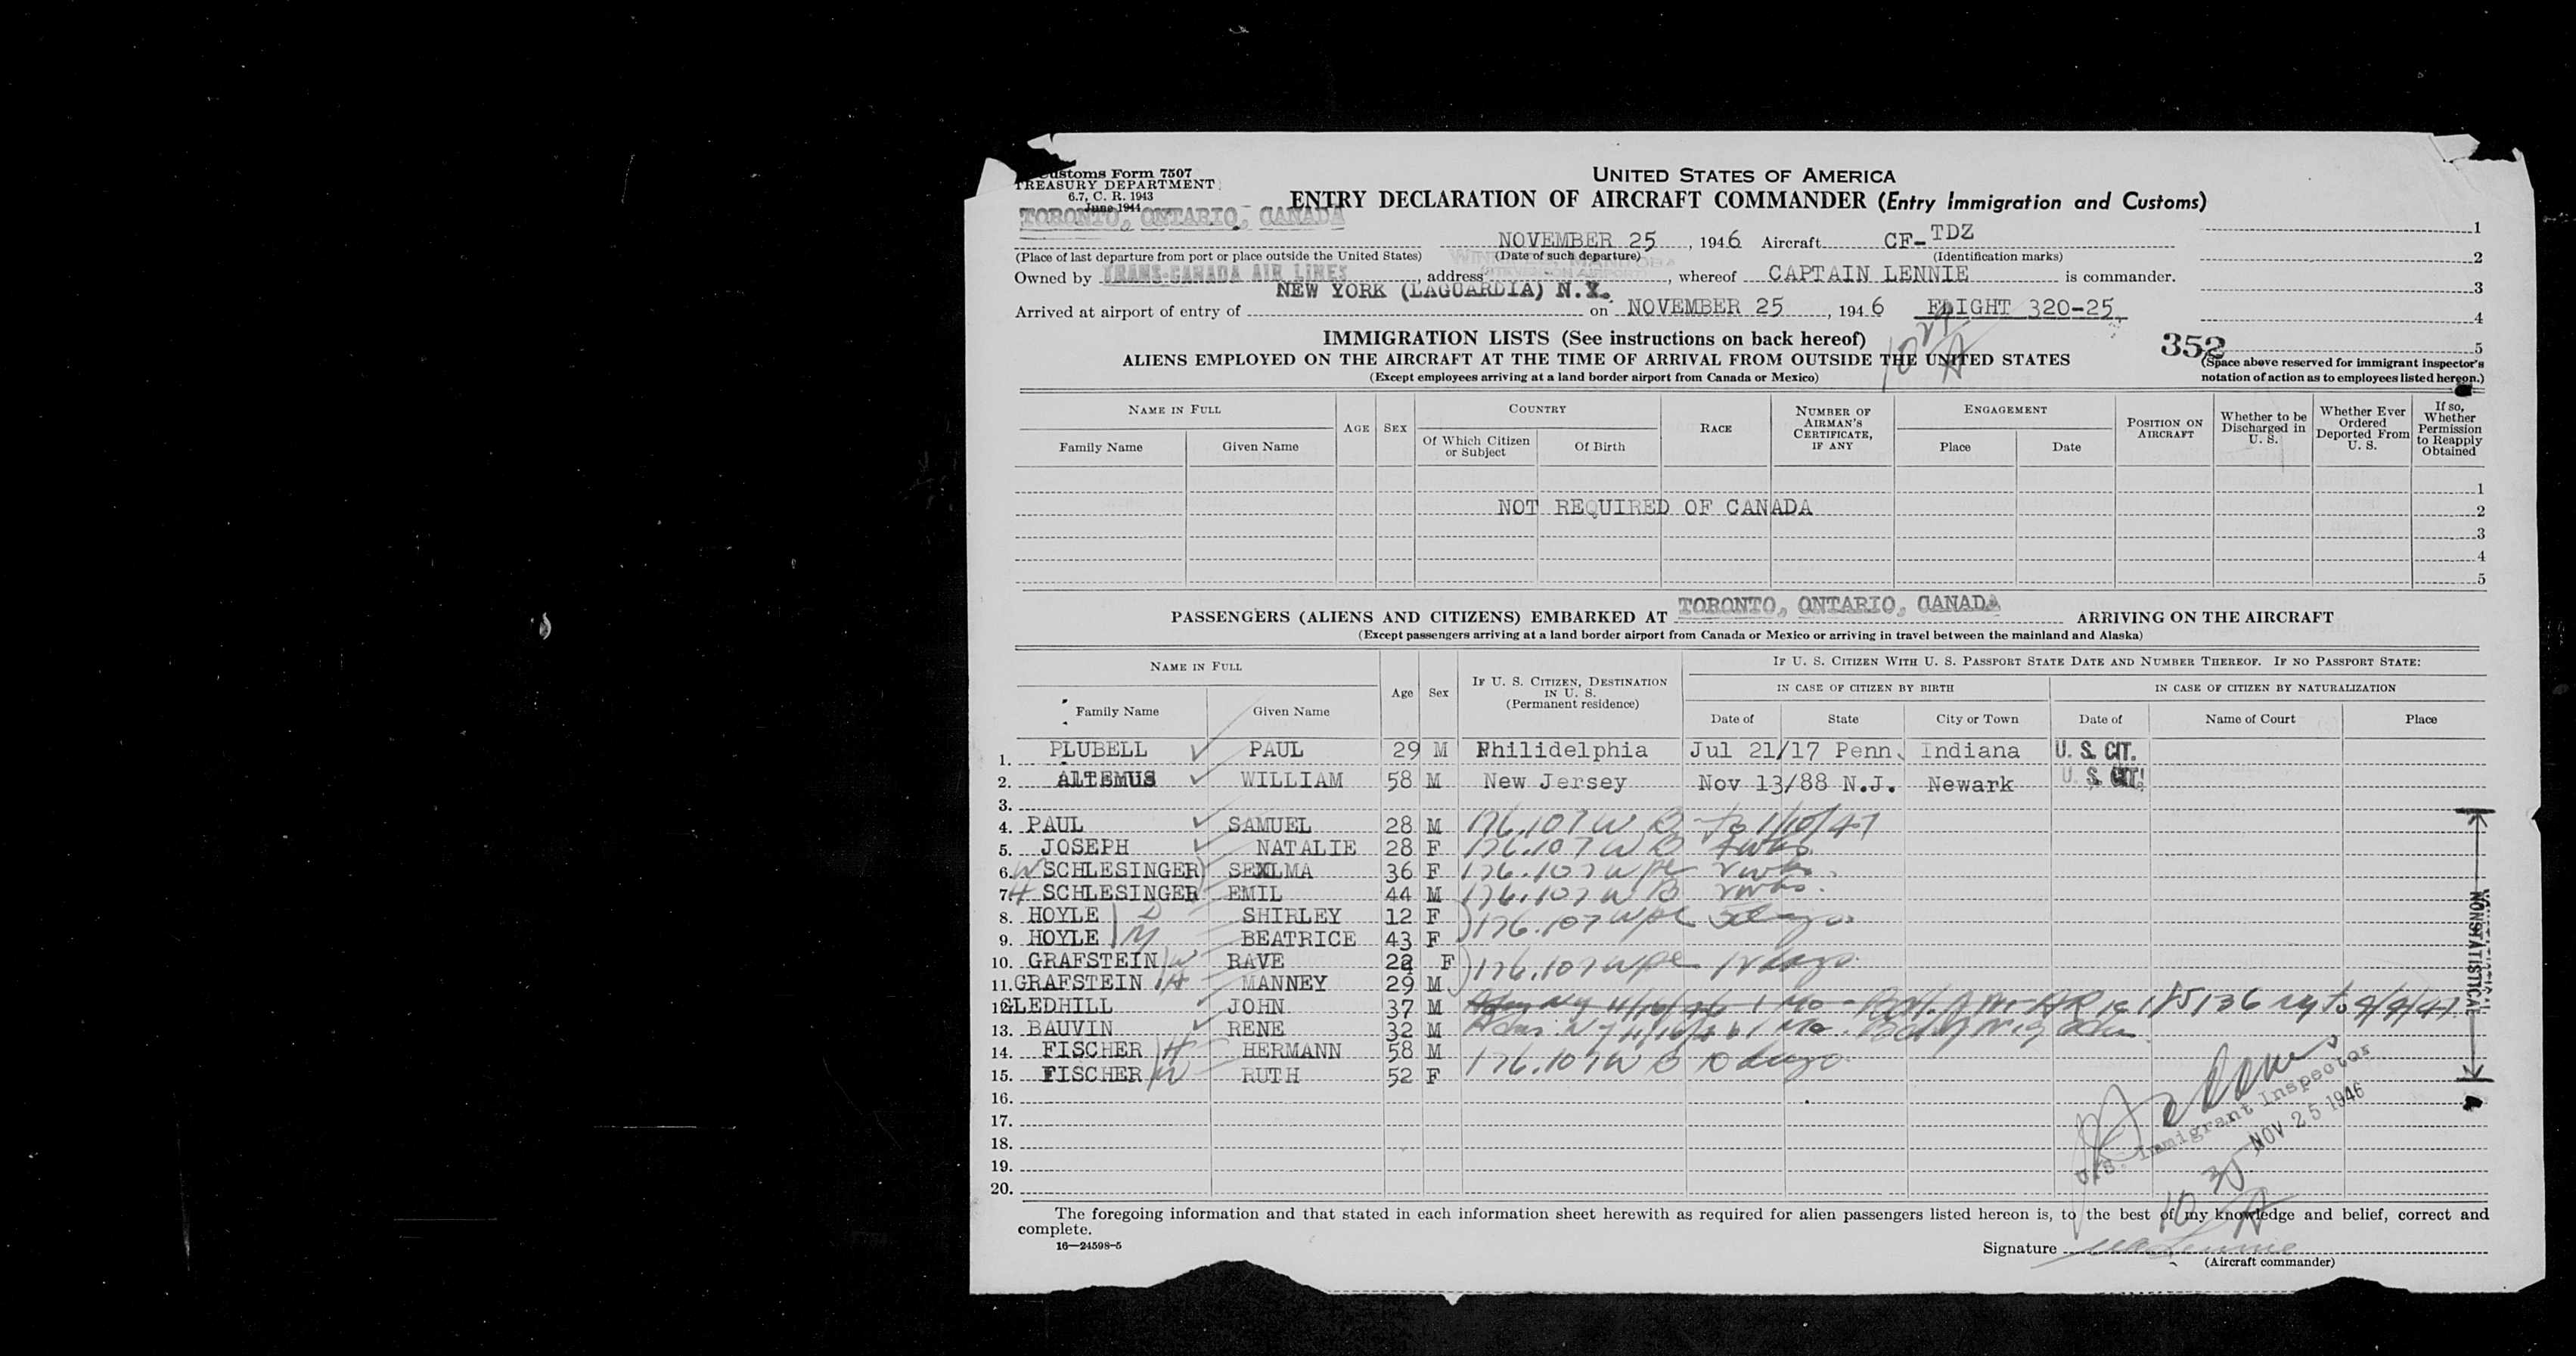 Customs Form 7507
TREASURY DEPARTMENT
6.7, C. R. 1943
June 1944
UNITED STATES OF AMERICA
ENTRY DECLARATION OF AIRCRAFT COMMANDER (Entry Immigration and Customs)
TORONTO, ONTARIO, CANADA
NOVEMBER 25, 1946 Aircraft CF-TDZ 1
(Place of last departure from port or place outside the United States) (Date of such departure) (Identification marks) 2
Owned by TRANS-CANADA AIR LINES, address, whereof CAPTAIN LENNIE is commander.
3
NEW YORK (LAGUARDIA) N.Y.
Arrived at airport of entry of on NOVEMBER 25, 1946 FLIGHT 320-25
4
IMMIGRATION LISTS (See instructions on back hereof)
352 5
ALIENS EMPLOYED ON THE AIRCRAFT AT THE TIME OF ARRIVAL FROM OUTSIDE THE UNITED STATES
(Space above reserved for immigrant inspector's
notation of action as to employees listed hereon.)
(Except employees arriving at a land border airport from Canada or Mexico)
NAME IN FULL AGE SEX COUNTRY RACE NUMBER OF AIRMAN'S CERTIFICATE, IF ANY ENGAGEMENT POSITION ON AIRCRAFT Whether to be Discharged in U. S. Whether Ever Ordered Deported From U. S. If so, Whether Permission to Reapply Obtained
Family Name Given Name Of Which Citizen or Subject Of Birth Place Date
1
NOT REQUIRED OF CANADA 2
3
4
5
PASSENGERS (ALIENS AND CITIZENS) EMBARKED AT TORONTO, ONTARIO, CANADA ARRIVING ON THE AIRCRAFT
(Except passengers arriving at a land border airport from Canada or Mexico or arriving in travel between the mainland and Alaska)
NAME IN FULL Age Sex IF U. S. CITIZEN, DESTINATION IN U. S. (Permanent residence) IF U. S. CITIZEN WITH U. S. PASSPORT STATE DATE AND NUMBER THEREOF. IF NO PASSPORT STATE:
IN CASE OF CITIZEN BY BIRTH IN CASE OF CITIZEN BY NATURALIZATION
Family Name Given Name Date of State City or Town Date of Name of Court Place
1. PLUBELL PAUL 29 M Philidelphia Jul 21/17 Penn. Indiana U. S. CIT.
2. ALTEMUS WILLIAM 58 M New Jersey Nov 13/88 N.J. Newark U. S. CIT.
3.
4. PAUL SAMUEL 28 M 176.107 W B to 1/10/47
5. JOSEPH NATALIE 28 F 176.107 W B
6. W SCHLESINGER SEXLMA 36 F 176.107
7. H SCHLESINGER EMIL 44 M 176.107 W B
8. HOYLE D SHIRLEY 12 F
9. HOYLE M BEATRICE 43 F 176.107
10. GRAFSTEIN W RAVE 22 F
11. GRAFSTEIN H MANNEY 29 M 176.107 12 days
12. GLEDHILL JOHN 37 M
13. BAUVIN RENE 32 M
14. FISCHER H HERMANN 58 M 176.107 W B 10 days
15. FISCHER W RUTH 52 F
16.
17.
18.
19.
20.
NONSTATISTICAL
U.S. Immigrant Inspector
NOV 25 1946
10 30 A
The foregoing information and that stated in each information sheet herewith as required for alien passengers listed hereon is, to the best of my knowledge and belief, correct and
complete.
16—24598-5
Signature
(Aircraft commander)